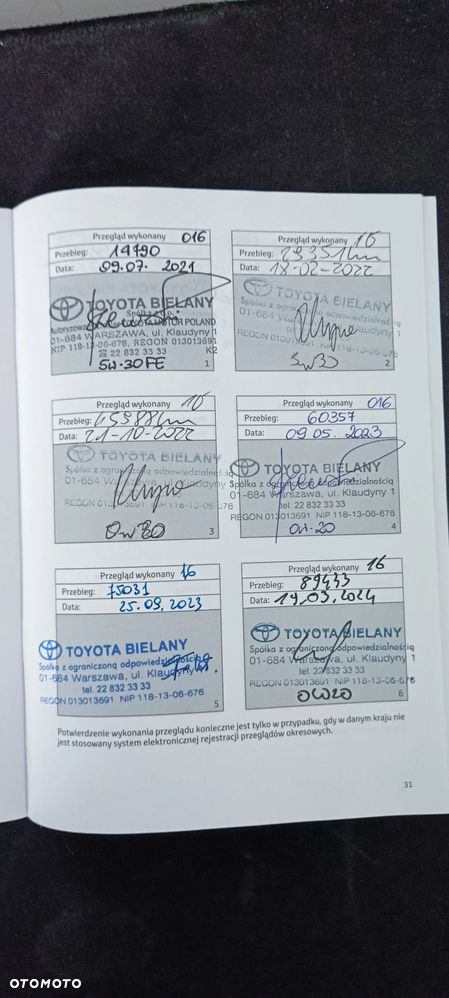 Przegląd wykonany 016
Przebieg: 14790
Data: 09.07. 2021
TOYOTA BIELANY
Spółka z o.o.
TOYOTA MOTOR POLAND
01-684 WARSZAWA, ul. Klaudyny 1
NIP 118-13-06-676, REGON 013013691
☎ 22 832 33 33 K2
5W-30FE
1
Przegląd wykonany
Przebieg: 29351km
Data: 18-02-2022
TOYOTA BIELANY
Spółka z ograniczoną odpowiedzialnością
01-684 Warszawa, ul. Klaudyny 1
REGON 013013691 NIP 118-13-06-676
5W30
2
Przegląd wykonany
Przebieg: 45988km
Data: 21-10-2022
TOYOTA BIELANY
Spółka z ograniczoną odpowiedzialnością
01-684 Warszawa, ul. Klaudyny 1
REGON 013013691 NIP 118-13-06-676
0W20
3
Przegląd wykonany 016
Przebieg: 60357
Data: 09.05. 2023
TOYOTA BIELANY
Spółka z ograniczoną odpowiedzialnością
01-684 Warszawa, ul. Klaudyny 1
tel. 22 832 33 33
REGON 013013691 NIP 118-13-06-676
0W-20
4
Przegląd wykonany 16
Przebieg: 75031
Data: 25.09.2023
TOYOTA BIELANY
Spółka z ograniczoną odpowiedzialnością
01-684 Warszawa, ul. Klaudyny 1
tel. 22 832 33 33
REGON 013013691 NIP 118-13-06-676
5
Przegląd wykonany 16
Przebieg: 89433
Data: 19.03.2024
TOYOTA BIELANY
Spółka z ograniczoną odpowiedzialnością
01-684 Warszawa, ul. Klaudyny 1
tel. 22 832 33 33
REGON 013013691 NIP 118-13-06-676
0W20
6
Potwierdzenie wykonania przeglądu konieczne jest tylko w przypadku, gdy w danym kraju nie
jest stosowany system elektronicznej rejestracji przeglądów okresowych.
31
OTOMOTO